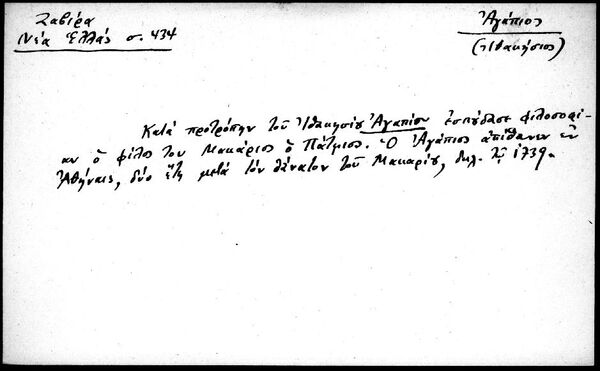 Ζαβίρα
Νέα Ἑλλάς σ. 434
Ἀγάπιος
(Ἰθακήσιος)
Κατά προτρόπην τοῦ Ἰθακησίου Ἀγαπίου ἐσπούδασε φιλοσοφί-
αν ὁ φίλος του Μακάριος ὁ Πάτμιος. Ὁ Ἀγάπιος ἀπέθανεν ἐν
Ἀθήναις, δύο ἔτη μετά τόν θάνατον τοῦ Μακαρίου, δηλ. τῷ 1739.